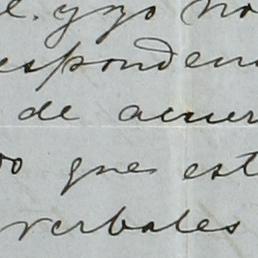 . y yo no
respondenc
de acuer
que est
verbales